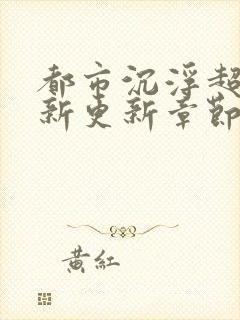 都市沉浮超
新更新章節
黃紅